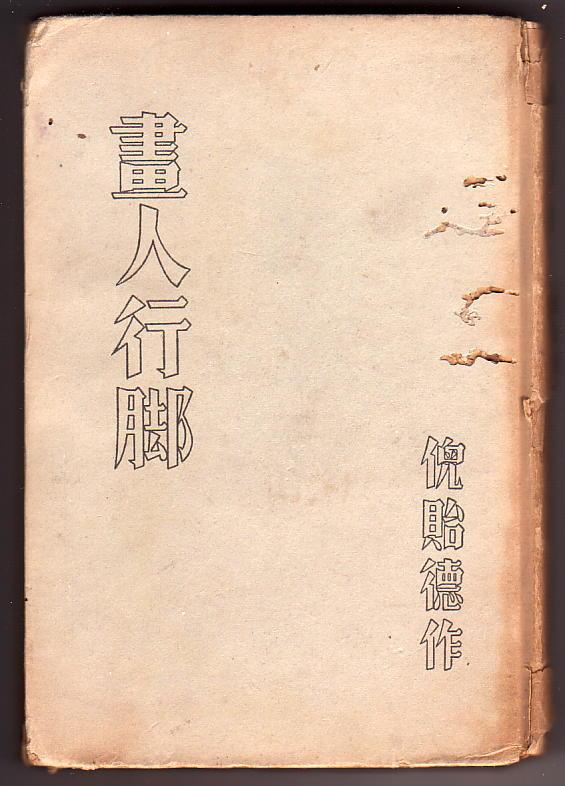 畫人行脚
倪貽德作